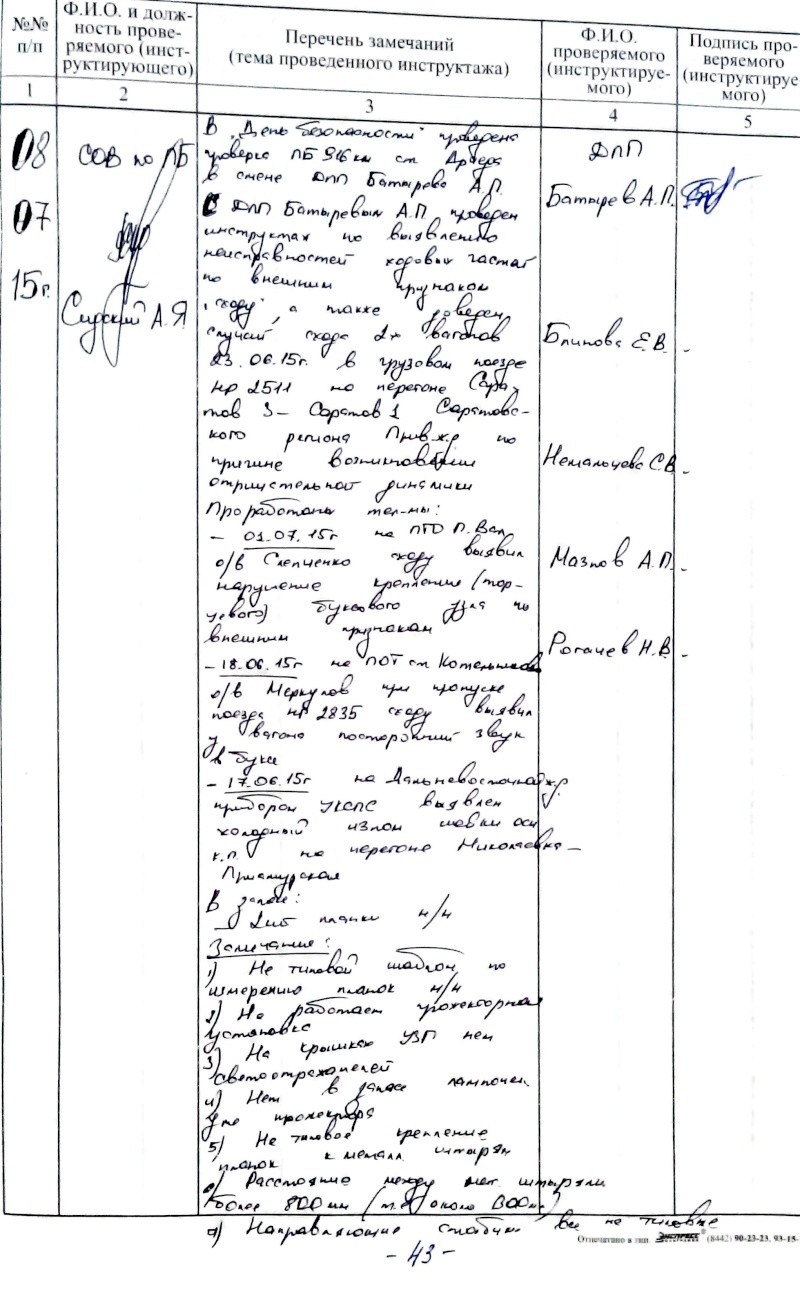 №№ п/п
Ф.И.О. и долж-
ность прове-
ряемого (инст-
руктирующего)
Перечень замечаний
(тема проведенного инструктажа)
Ф.И.О.
проверяемого
(инструктируе-
мого)
Подпись про-
веряемого
(инструктируе
мого)
1 2 3 4 5
08
07
15г.
СОВ по ПБ
Сидский А.Я.
В "День безопасности" проведена
проверка ПБ 916 км ст.
в смене ДПП Батырева А.П.
С ДПП Батыревым А.П. проведен
инструктаж по выявлению
неисправностей ходовых частей
по внешним признакам
"сходу", а также доведен
случай схода 2х вагонов
23.06.15г. в грузовом поезде
№ 2511 на перегоне Сара-
тов 3 - Саратов 1 Саратовс-
кого региона Прив.ж.д. по
причине возникновения
отрицательной динамики
Проработаны тел-мы:
- 01.07.15г на ПТО П. Вал
о/в Слепченко сходу выявил
нарушение крепления (тор-
цевого) буксового узла по
внешним признакам
- 18.06.15г на ПОТ ст. Котельниково
о/в Меркулов при пропуске
поезда № 2835 сходу выявил
у вагона посторонний звук
в буксе
- 17.06.15г на Дальневосточной ж.д.
прибором УКСПС выявлен
холодный излом шейки оси
к.п. на перегоне Николаевка -
Приамурская
В запасе:
2шт планки н/н
Замечания:
1) Не типовой шаблон по
измерению планок н/н
2) Не работает прожекторная
установка
3) На крышках УЗП нет
светоотражателей
4) Нет в запасе лампочек
для прожектора
5) Не типовое крепление
планок к металл. штырям
6) Расстояние между мет. штырями
более 800мм (т.е. около
7) Направляющие столбики все не типовые
ДПП
Батырев А.П.
Блинова Е.В. -
Немальцева С.В. -
Мазнов А.П. -
Рогачев Н.В. -
- 43 -
Отпечатано в тип. Экспресс (8442) 90-23-23, 93-15-